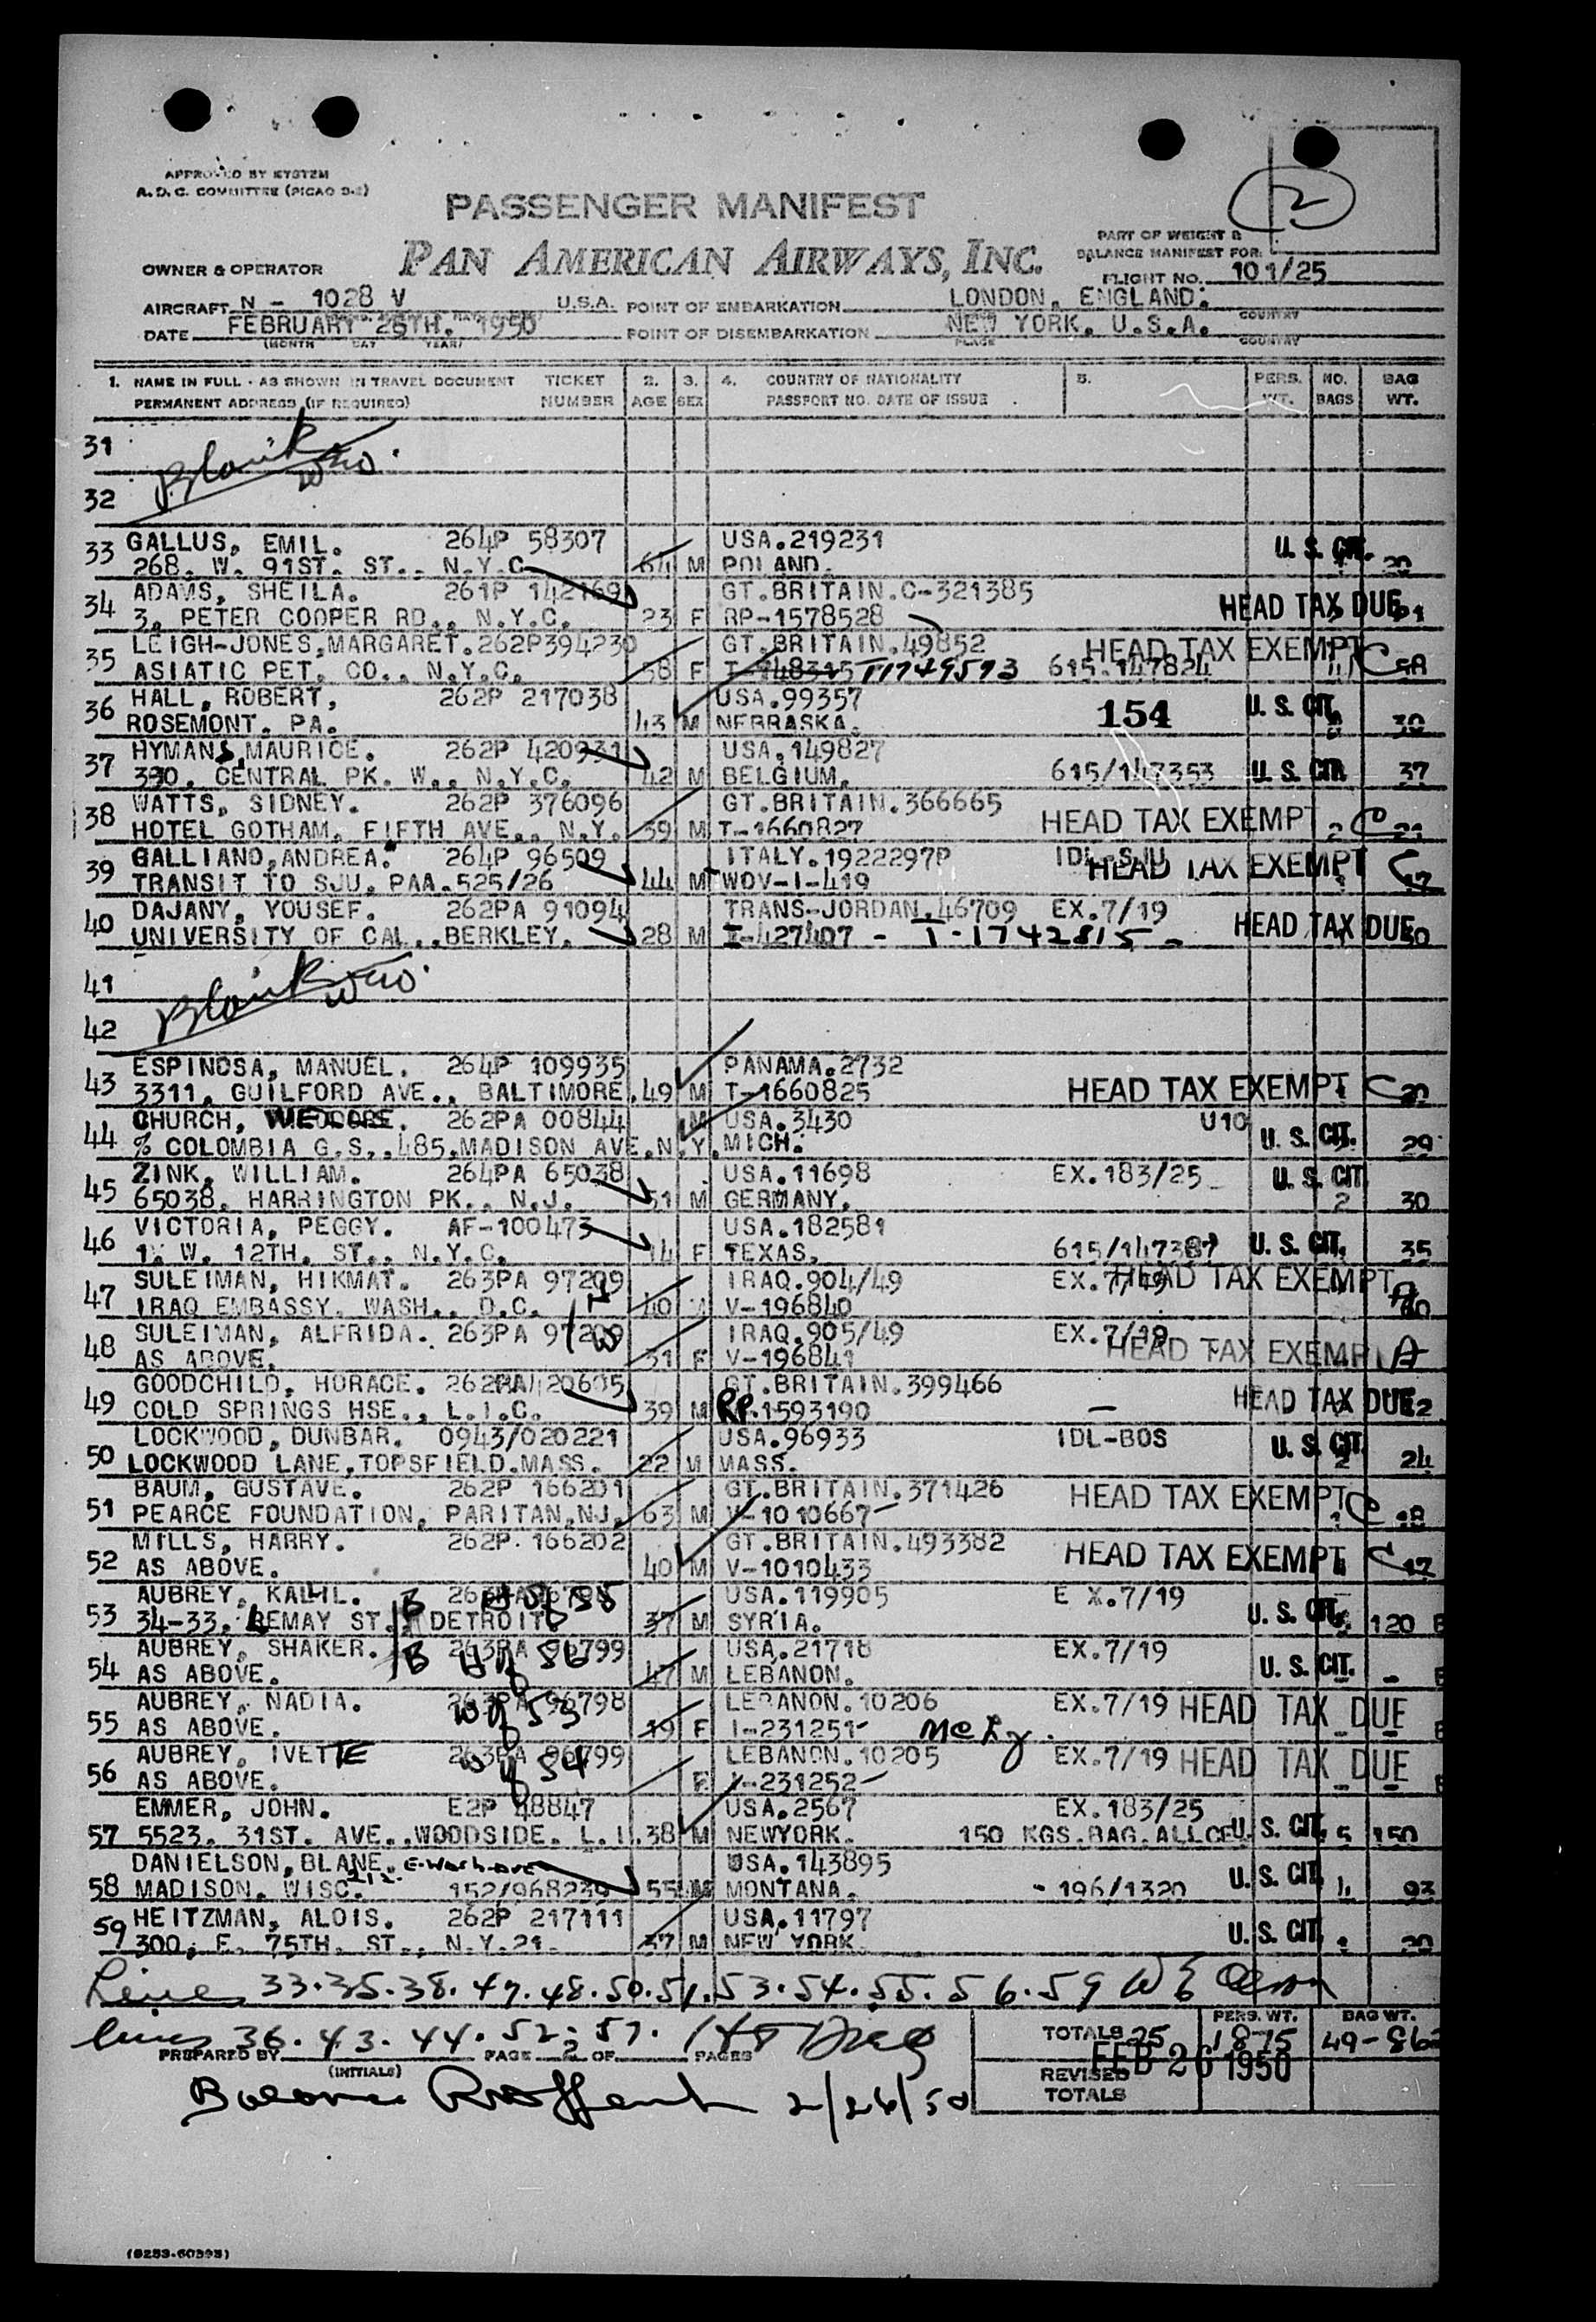 APPROVED BY SYSTEM
A. D. C. COMMITTEE (PICAO 9-2)
2
PASSENGER MANIFEST
PAN AMERICAN AIRWAYS, INC.
PART OF WEIGHT &
BALANCE MANIFEST FOR:
OWNER & OPERATOR
FLIGHT NO. 101/25
AIRCRAFT N - 1028 V U.S.A. POINT OF EMBARKATION LONDON, ENGLAND. COUNTRY
DATE FEBRUARY 25TH. 1950 POINT OF DISEMBARKATION NEW YORK, U.S.A.
(MONTH DAY YEAR) PLACE COUNTRY
1. NAME IN FULL - AS SHOWN IN TRAVEL DOCUMENT TICKET 2. 3. 4. COUNTRY OF NATIONALITY 5. PERS. NO. BAG
PERMANENT ADDRESS (IF REQUIRED) NUMBER AGE SEX PASSPORT NO. DATE OF ISSUE WT. BAGS WT.
31 Blank
32
33 GALLUS, EMIL. 264P 58307 USA.219231 U. S. CIT.
268. W. 91ST. ST., N.Y.C 64 M POLAND. 20
34 ADAMS, SHEILA. 261P 142169 GT.BRITAIN.C-321385
3, PETER COOPER RD., N.Y.C. 23 F RP-1578528 HEAD TAX DUE
35 LEIGH-JONES,MARGARET.262P394230 GT.BRITAIN.49852 HEAD TAX EXEMPT C
ASIATIC PET. CO., N.Y.C. 58 F T-148315 T1749573 615.147824
36 HALL, ROBERT, 262P 217038 USA.99357 154 U. S. CIT.
ROSEMONT. PA. 43 M NEBRASKA. 30
37 HYMANS,MAURICE. 262P 420931 USA.149827
390, CENTRAL PK. W., N.Y.C. 42 M BELGIUM. 615/147353 U. S. CIT. 37
38 WATTS, SIDNEY. 262P 376096 GT.BRITAIN.366665
HOTEL GOTHAM, FIFTH AVE., N.Y. 39 M T-1660827 HEAD TAX EXEMPT 2 C 21
39 GALLIANO,ANDREA. 264P 96509 ITALY.1922297P IDL-SJU
TRANSIT TO SJU. PAA.525/26 44 M WOV-I-419 HEAD TAX EXEMPT C 17
40 DAJANY, YOUSEF. 262PA 91094 TRANS-JORDAN.46709 EX.7/19
UNIVERSITY OF CAL.,BERKLEY. 28 M I-427407 - T-1742815 - HEAD TAX DUE
41 Blank
42
43 ESPINOSA, MANUEL. 264P 109935 PANAMA.2732
3311, GUILFORD AVE., BALTIMORE. 49 M T-1660825 HEAD TAX EXEMPT C 20
44 CHURCH, 262PA 00844 M USA.3430 U10
% COLOMBIA G.S.,485,MADISON AVE.N.Y. MICH. U. S. CIT. 29
45 ZINK, WILLIAM. 264PA 65038 USA.11698 EX.183/25 U. S. CIT
65038. HARRINGTON PK., N.J. 51 M GERMANY. 2 30
46 VICTORIA, PEGGY. AF-100473 USA.182581
1. W. 12TH. ST., N.Y.C. 14 F TEXAS. 615/147387 U. S. CIT. 35
47 SULEIMAN, HIKMAT. 263PA 97209 IRAQ.904/49 EX.7/19 HEAD TAX EXEMPT A
IRAQ EMBASSY. WASH., D.C. 40 M V-196840
48 SULEIMAN, ALFRIDA. 263PA 97209 IRAQ.905/49 EX.7/19
AS ABOVE. 31 F V-196841 HEAD TAX EXEMP A
49 GOODCHILD, HORACE. 262PA120605 GT.BRITAIN.399466
COLD SPRINGS HSE., L.I.C. 39 M RP.1593190 HEAD TAX DUE
50 LOCKWOOD, DUNBAR. 0943/020221 USA.96933 IDL-BOS U. S. CIT.
LOCKWOOD LANE,TOPSFIELD.MASS. 22 M MASS. 2 24
51 BAUM, GUSTAVE. 262P 166201 GT.BRITAIN.371426 HEAD TAX EXEMPT C
PEARCE FOUNDATION, PARITAN,NJ. 63 M V-1010667 1 18
52 MILLS, HARRY. 262P.166202 GT.BRITAIN.493382
AS ABOVE. 40 M V-1010433 HEAD TAX EXEMPT C 17
53 AUBREY, KALIL. B USA.119905 E X.7/19
34-33. LEMAY ST. DETROIT 37 M SYRIA. U. S. CIT. 120
54 AUBREY, SHAKER. B 263PA 96799 USA.21718 EX.7/19
AS ABOVE. 47 M LEBANON. U. S. CIT. -
55 AUBREY, NADIA. 263PA 96798 LEBANON.10206 EX.7/19 HEAD TAX DUE
AS ABOVE. 19 F I-231251
56 AUBREY, IVETTE 263PA 96799 LEBANON.10205 EX.7/19 HEAD TAX DUE
AS ABOVE. F I-231252
57 EMMER, JOHN. E2P 48847 USA.2567 EX.183/25
5523. 31ST. AVE.,WOODSIDE. L.I. 38 M NEWYORK. 150 KGS.BAG.ALLCE U. S. CIT. 5 150
58 DANIELSON,BLANE. 212. E. Wash. Ave USA.143895
MADISON. WISC. 152/968239 55 M MONTANA. - 196/1320 U. S. CIT. 4 93
59 HEITZMAN, ALOIS. 262P 217111 USA.11797
300, E. 75TH. ST., N.Y.21. 37 M NEW YORK. U. S. CIT. 20
Lines 33.35.38.47.48.50.51.53.54.55.56.59
lines 36.43.44.52.57.
PREPARED BY (INITIALS) PAGE 2 OF PAGES
TOTALS 25 PERS. WT. 1875 BAG WT. 49-862
REVISED TOTALS
FEB 26 1950
Balance 2/26/50
(8253-60593)